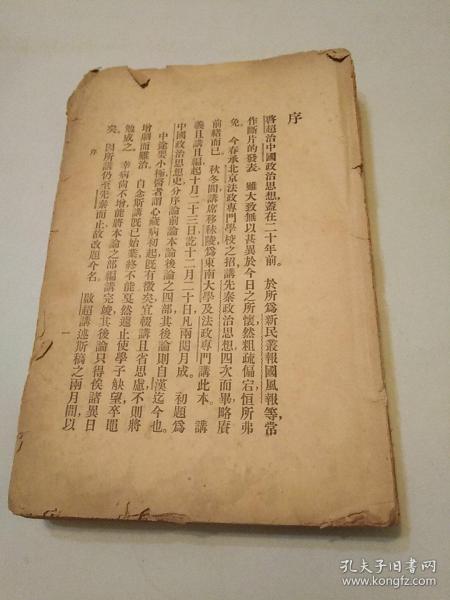 序
啓超治中國政治思想，蓋在二十年前。於所爲新民叢報國風報等，常
作斷片的發表。雖大致無以甚異於今日之所懷，然粗疏偏宕，恒所弗
免。今春承北京法政專門學校之招，講先秦政治思想，四次而畢，略賡
前緒而已。秋冬間，講席移秣陵，爲東南大學及法政專門講此本。講
義且講且編，起十月二十三日，訖十二月二十日，凡兩閱月成。初題爲
中國政治思想史，分序論前論本論後論之四部，其後論則自漢迄今也。
中途嬰小極，醫者謂心藏病初起，旣有徵矣，宜輟講且省思慮，不則將
增劇而難治。自念斯講旣已始業，終不能戛然遽止，使學子觖望，卒黽
勉成之。幸病尙不增，能將本論之部編講完竣，其後論只得俟諸異日
矣。因所講仍至先秦而止，故改題今名。啟超講述斯稿之兩月間，以
序
一
孔夫子旧书网
www.kongfz.com